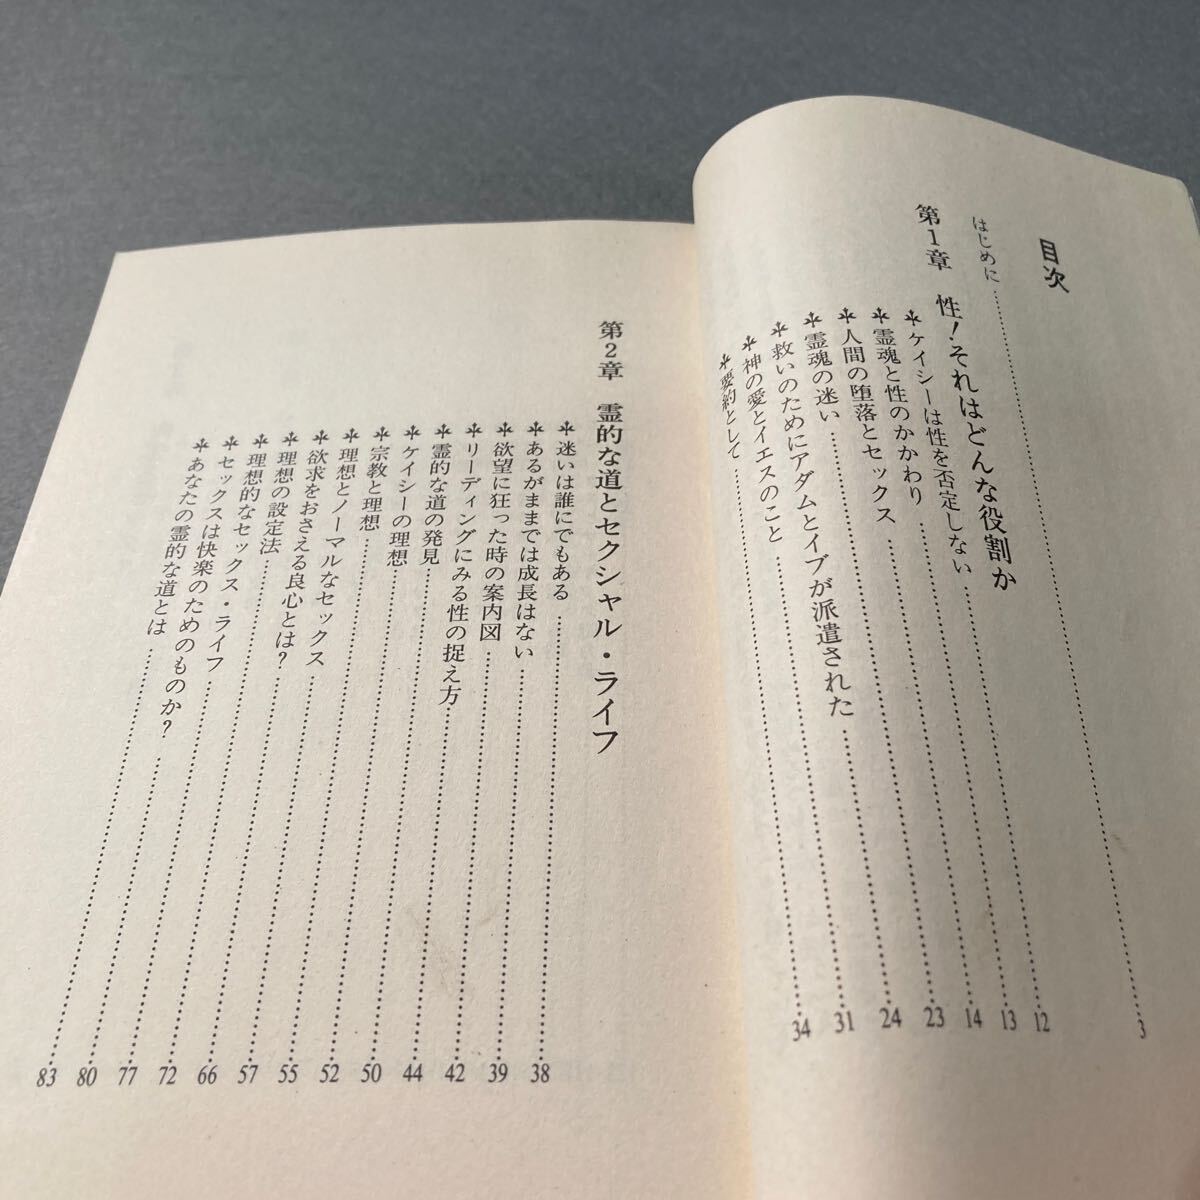 目次
はじめに……3
第1章 性！それはどんな役割か
ケイシーは性を否定しない……12
霊魂と性のかかわり……13
人間の堕落とセックス……14
霊魂の迷い……23
救いのためにアダムとイブが派遣された……24
神の愛とイエスのこと……31
要約として……34
第2章 霊的な道とセクシャル・ライフ
迷いは誰にでもある……38
あるがままでは成長はない……39
欲望に狂った時の案内図……42
リーディングにみる性の捉え方……44
霊的な道の発見……50
ケイシーの理想……52
宗教と理想……55
理想とノーマルなセックス……57
欲求をおさえる良心とは？……66
理想の設定法……72
理想的なセックス・ライフ……77
セックスは快楽のためのものか？……80
あなたの霊的な道とは……83